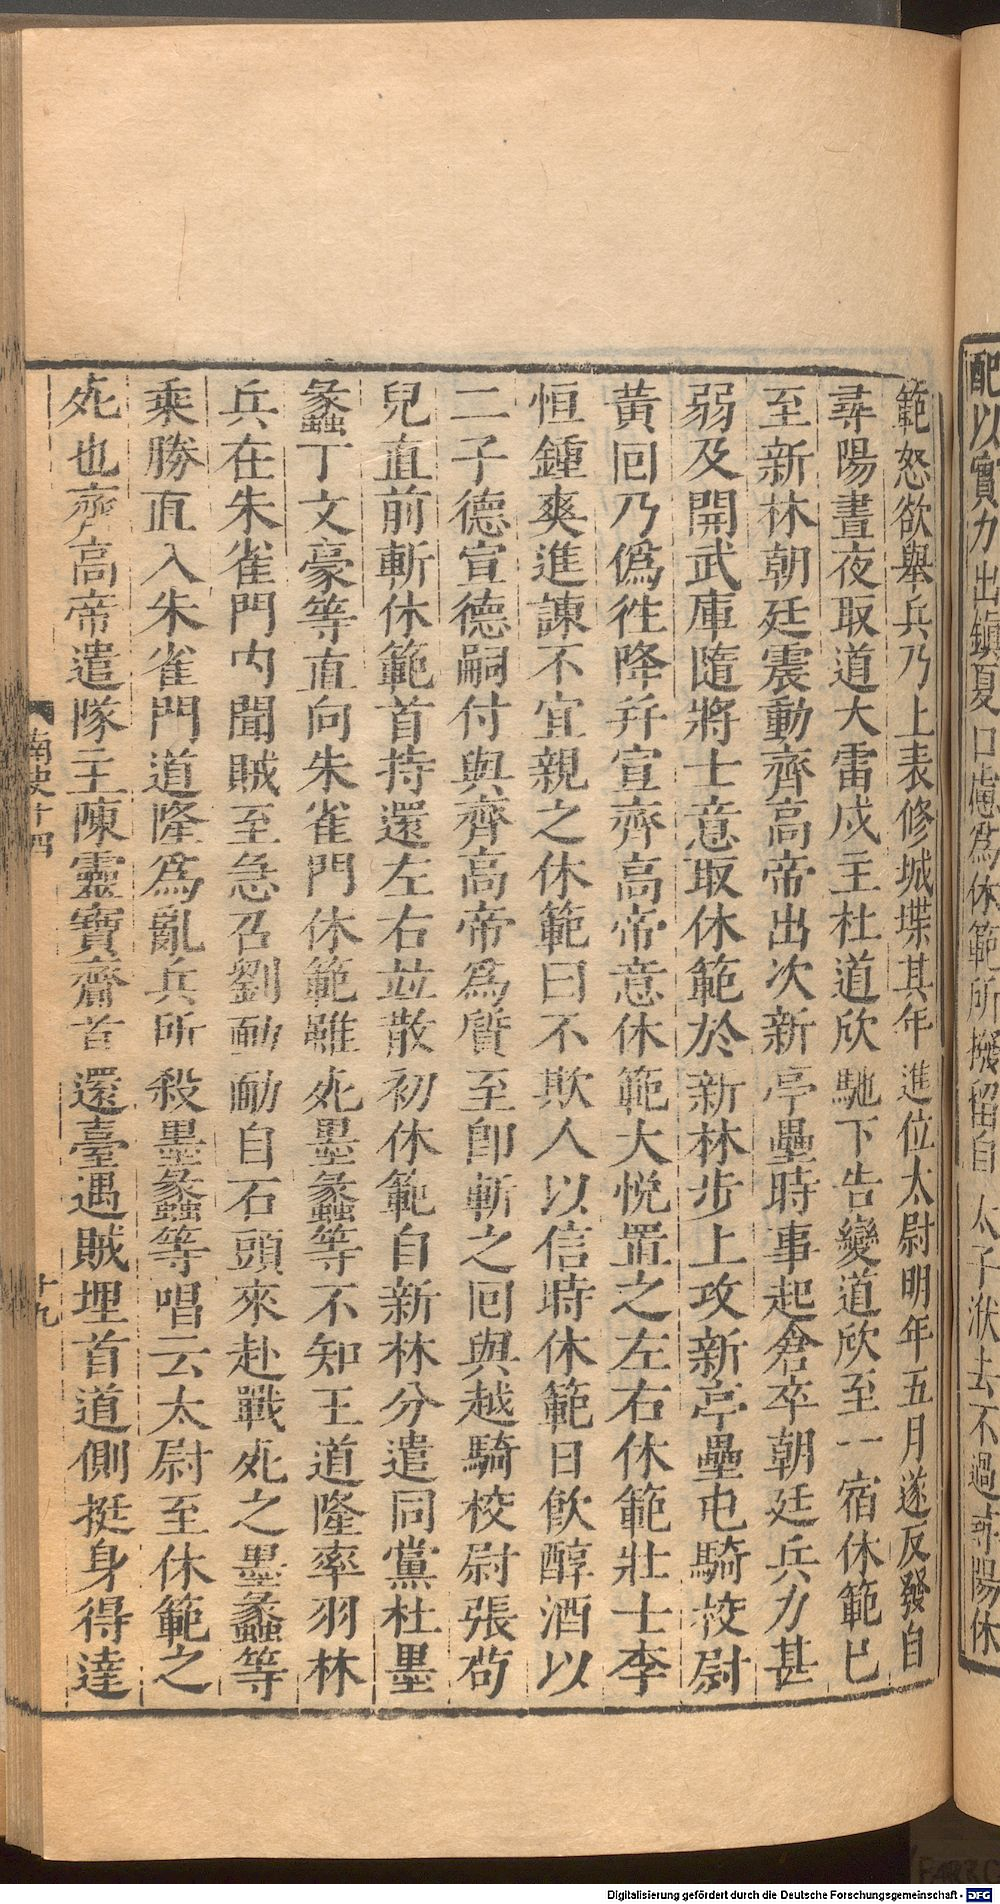 配以實力出鎮夏口慮爲休範所撥留自太子洑去不過尋陽休
範怒欲舉兵乃上表修城堞其年進位太尉明年五月遂反發自
尋陽晝夜取道大雷戍主杜道欣馳下告變道欣至一宿休範已
至新林朝廷震動齊高帝出次新亭壘時事起倉卒朝廷兵力甚
弱及開武庫隨將士意取休範於新林步上攻新亭壘屯騎校尉
黃回乃僞徃降幷宣齊高帝意休範大悅置之左右休範壯士李
恒鍾爽進諫不宜親之休範曰不欺人以信時休範日飮醇酒以
二子德宣德嗣付與齊高帝爲質至卽斬之回與越騎校尉張苟
兒直前斬休範首持還左右竝散初休範自新林分遣同黨杜墨
蠡丁文豪等直向朱雀門休範雖死墨蠡等不知王道隆率羽林
兵在朱雀門内聞賊至急召劉勔勔自石頭來赴戰死之墨蠡等
乘勝直入朱雀門道隆爲亂兵所殺墨蠡等唱云太尉至休範之
死也齊高帝遣隊主陳靈寶齎首還臺遇賊埋首道側挺身得達
南史十四
十九
Digitalisierung gefördert durch die Deutsche Forschungsgemeinschaft - DFG